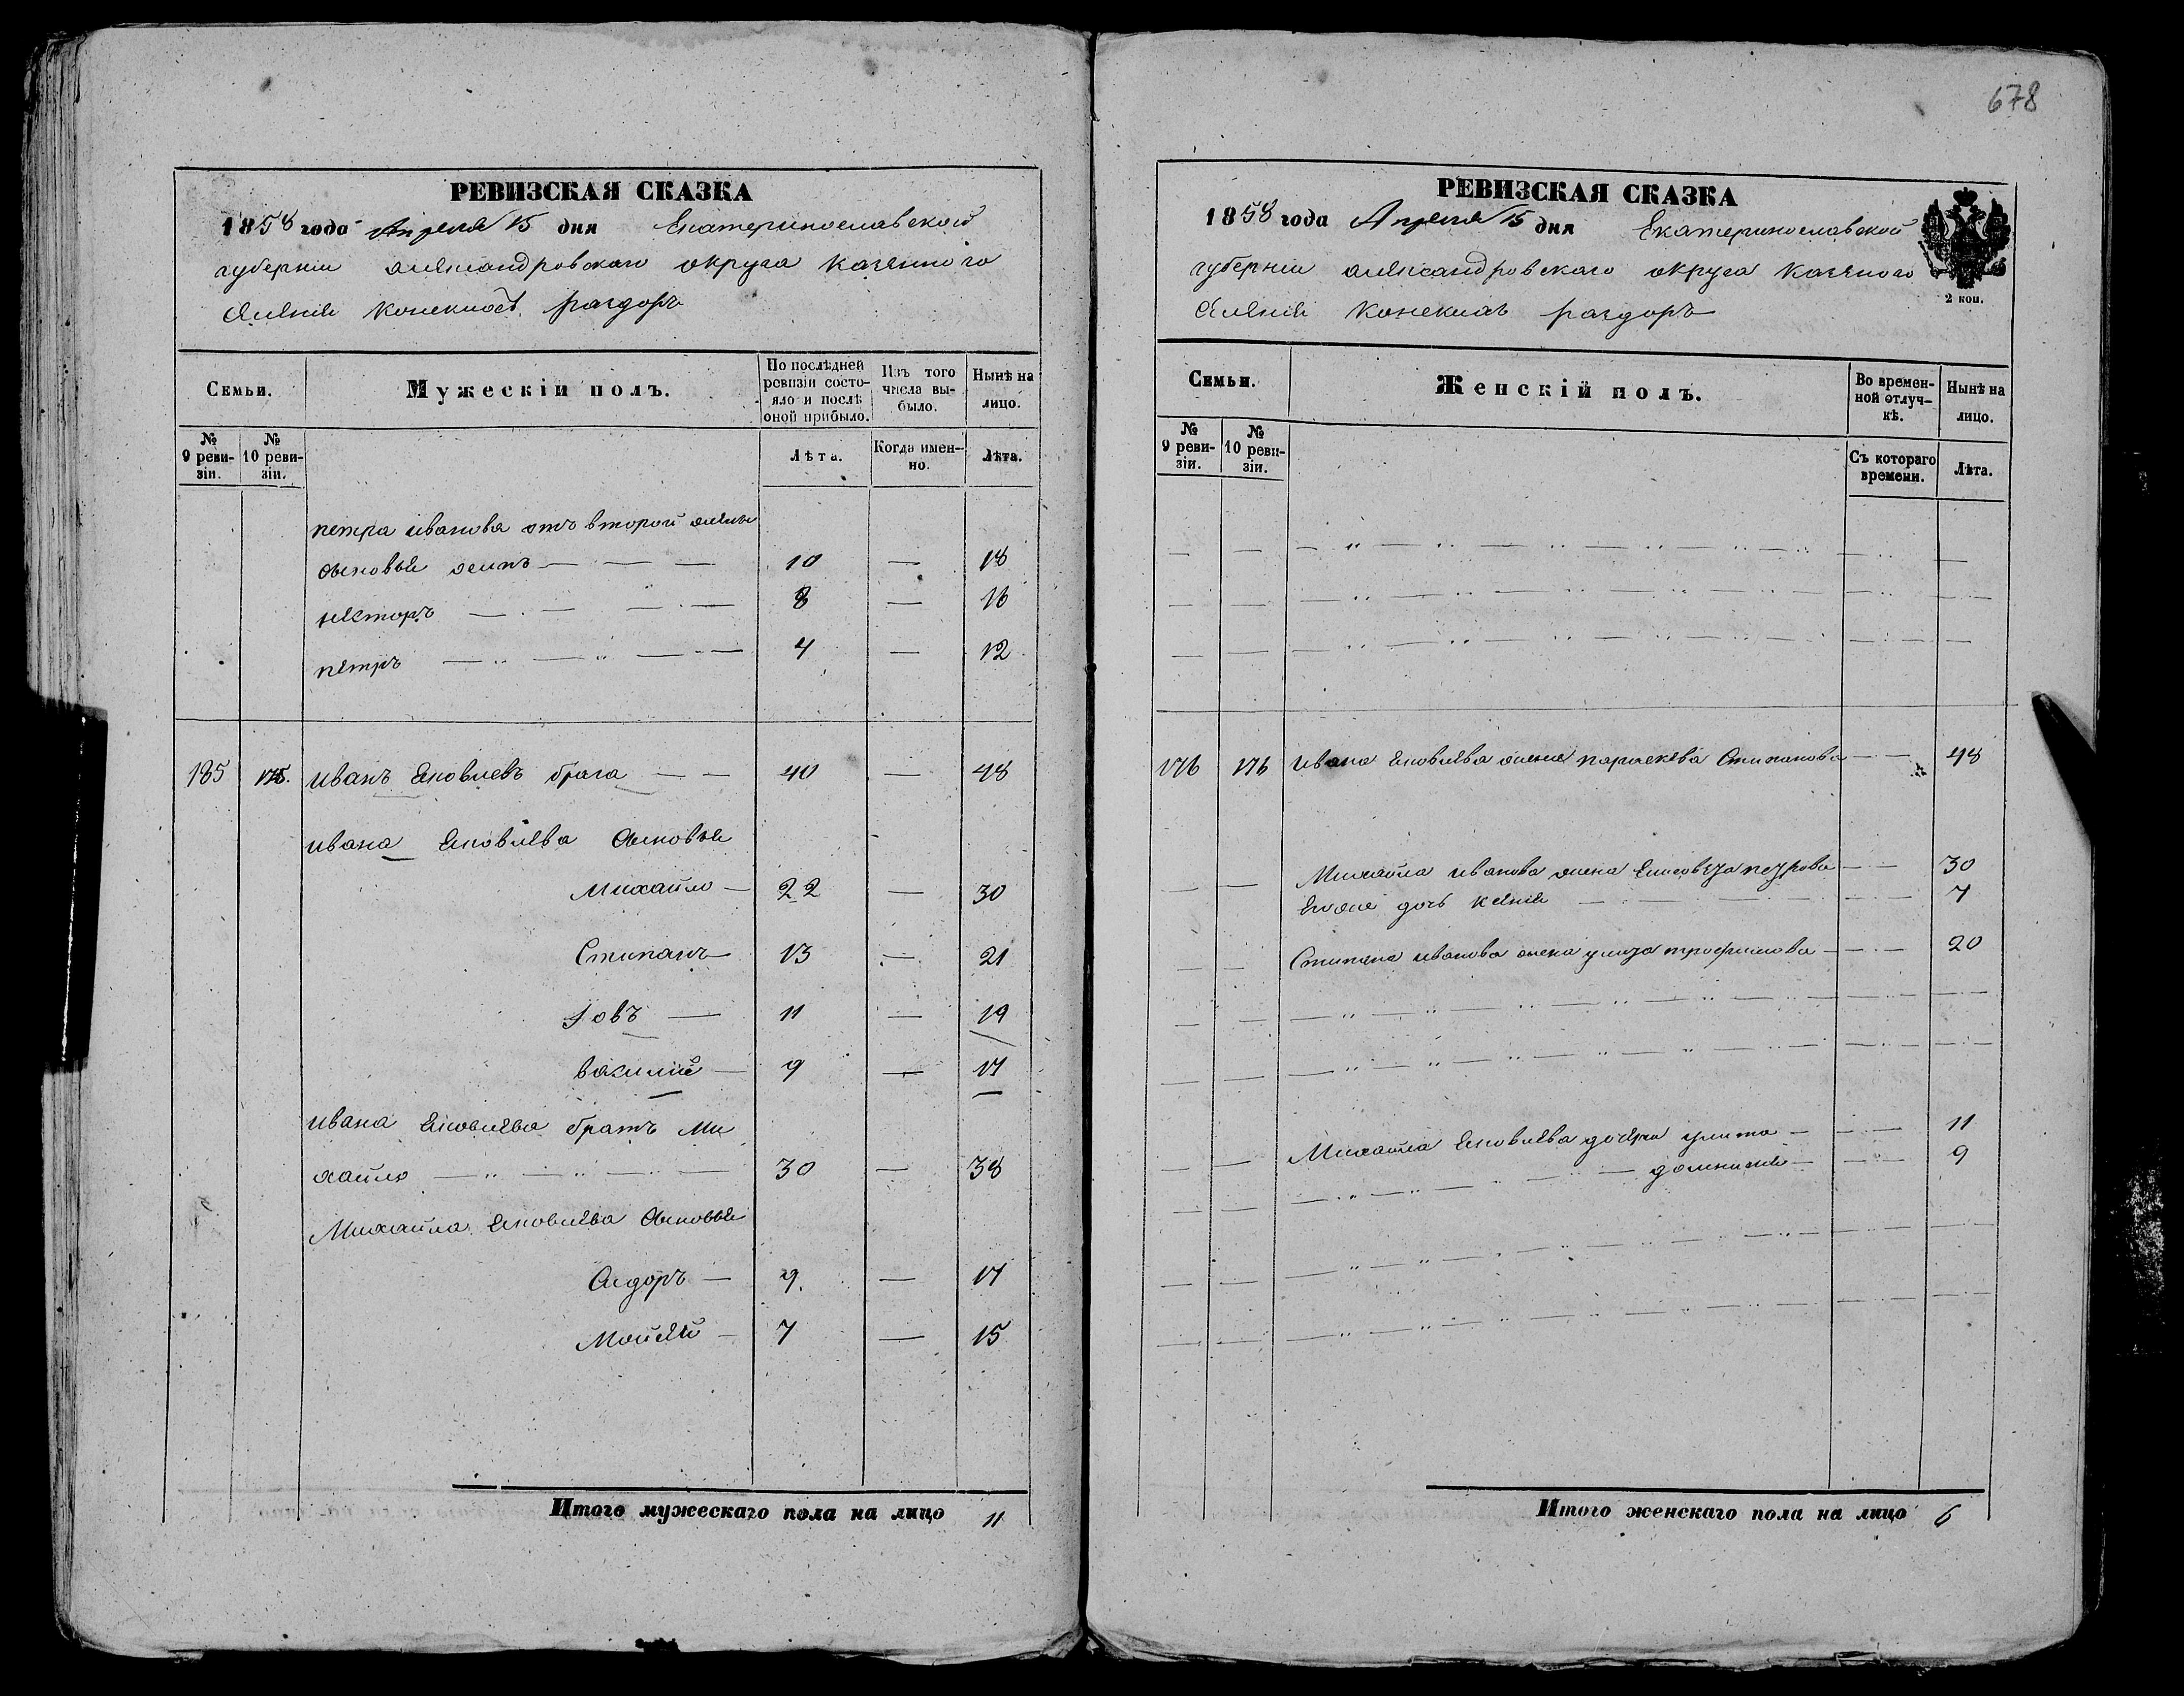 678
РЕВИЗСКАЯ СКАЗКА
1858 года Апреля 15 дня Екатеринославской
губерніи александровскаго округа казеннаго
селенія Конскихъ раздоръ
Семьи.
Мужескій полъ.
По послѣдней ревизіи состояло и послѣ оной прибыло.
Изъ того числа выбыло.
Нынѣ на лицо.
№ 9 ревизіи.
№ 10 ревизіи.
Лѣта.
Когда именно.
Лѣта.
петра иванова отъ второй жены
сыновья осипъ — 10 — 18
несторъ — 8 — 16
петръ — 4 — 12
185 175. иванъ Яковлевъ брага — 40 — 48
ивана Яковлева сыновья
Михайло — 22 — 30
Степанъ — 13 — 21
Іовъ — 11 — 19
василій — 9 — 17
ивана Яковлева братъ Ми
хайло — 30 — 38
Михайла Яковлева сыновья
Сидоръ — 9. — 17
Мойсей — 7 — 15
Итого мужескаго пола на лицо 11
РЕВИЗСКАЯ СКАЗКА
1858 года Апреля 15 дня Екатеринославской
губерніи александровскаго округа казеного
селенія Конскихъ раздоръ
2 коп.
Семьи.
Женскій полъ.
Во временной отлучкѣ.
Нынѣ на лицо.
№ 9 ревизіи.
№ 10 ревизіи.
Съ котораго времени.
Лѣта.
176 176 ивана Яковлева жена параскева Степанова — 48
Михайла иванова жена Елисовета петрова — 30
дочь — 7
Степана иванова жена улита трофимова — 20
Михайла Яковлева дочери улита — 11
домникия — 9
Итого женскаго пола на лицо 6